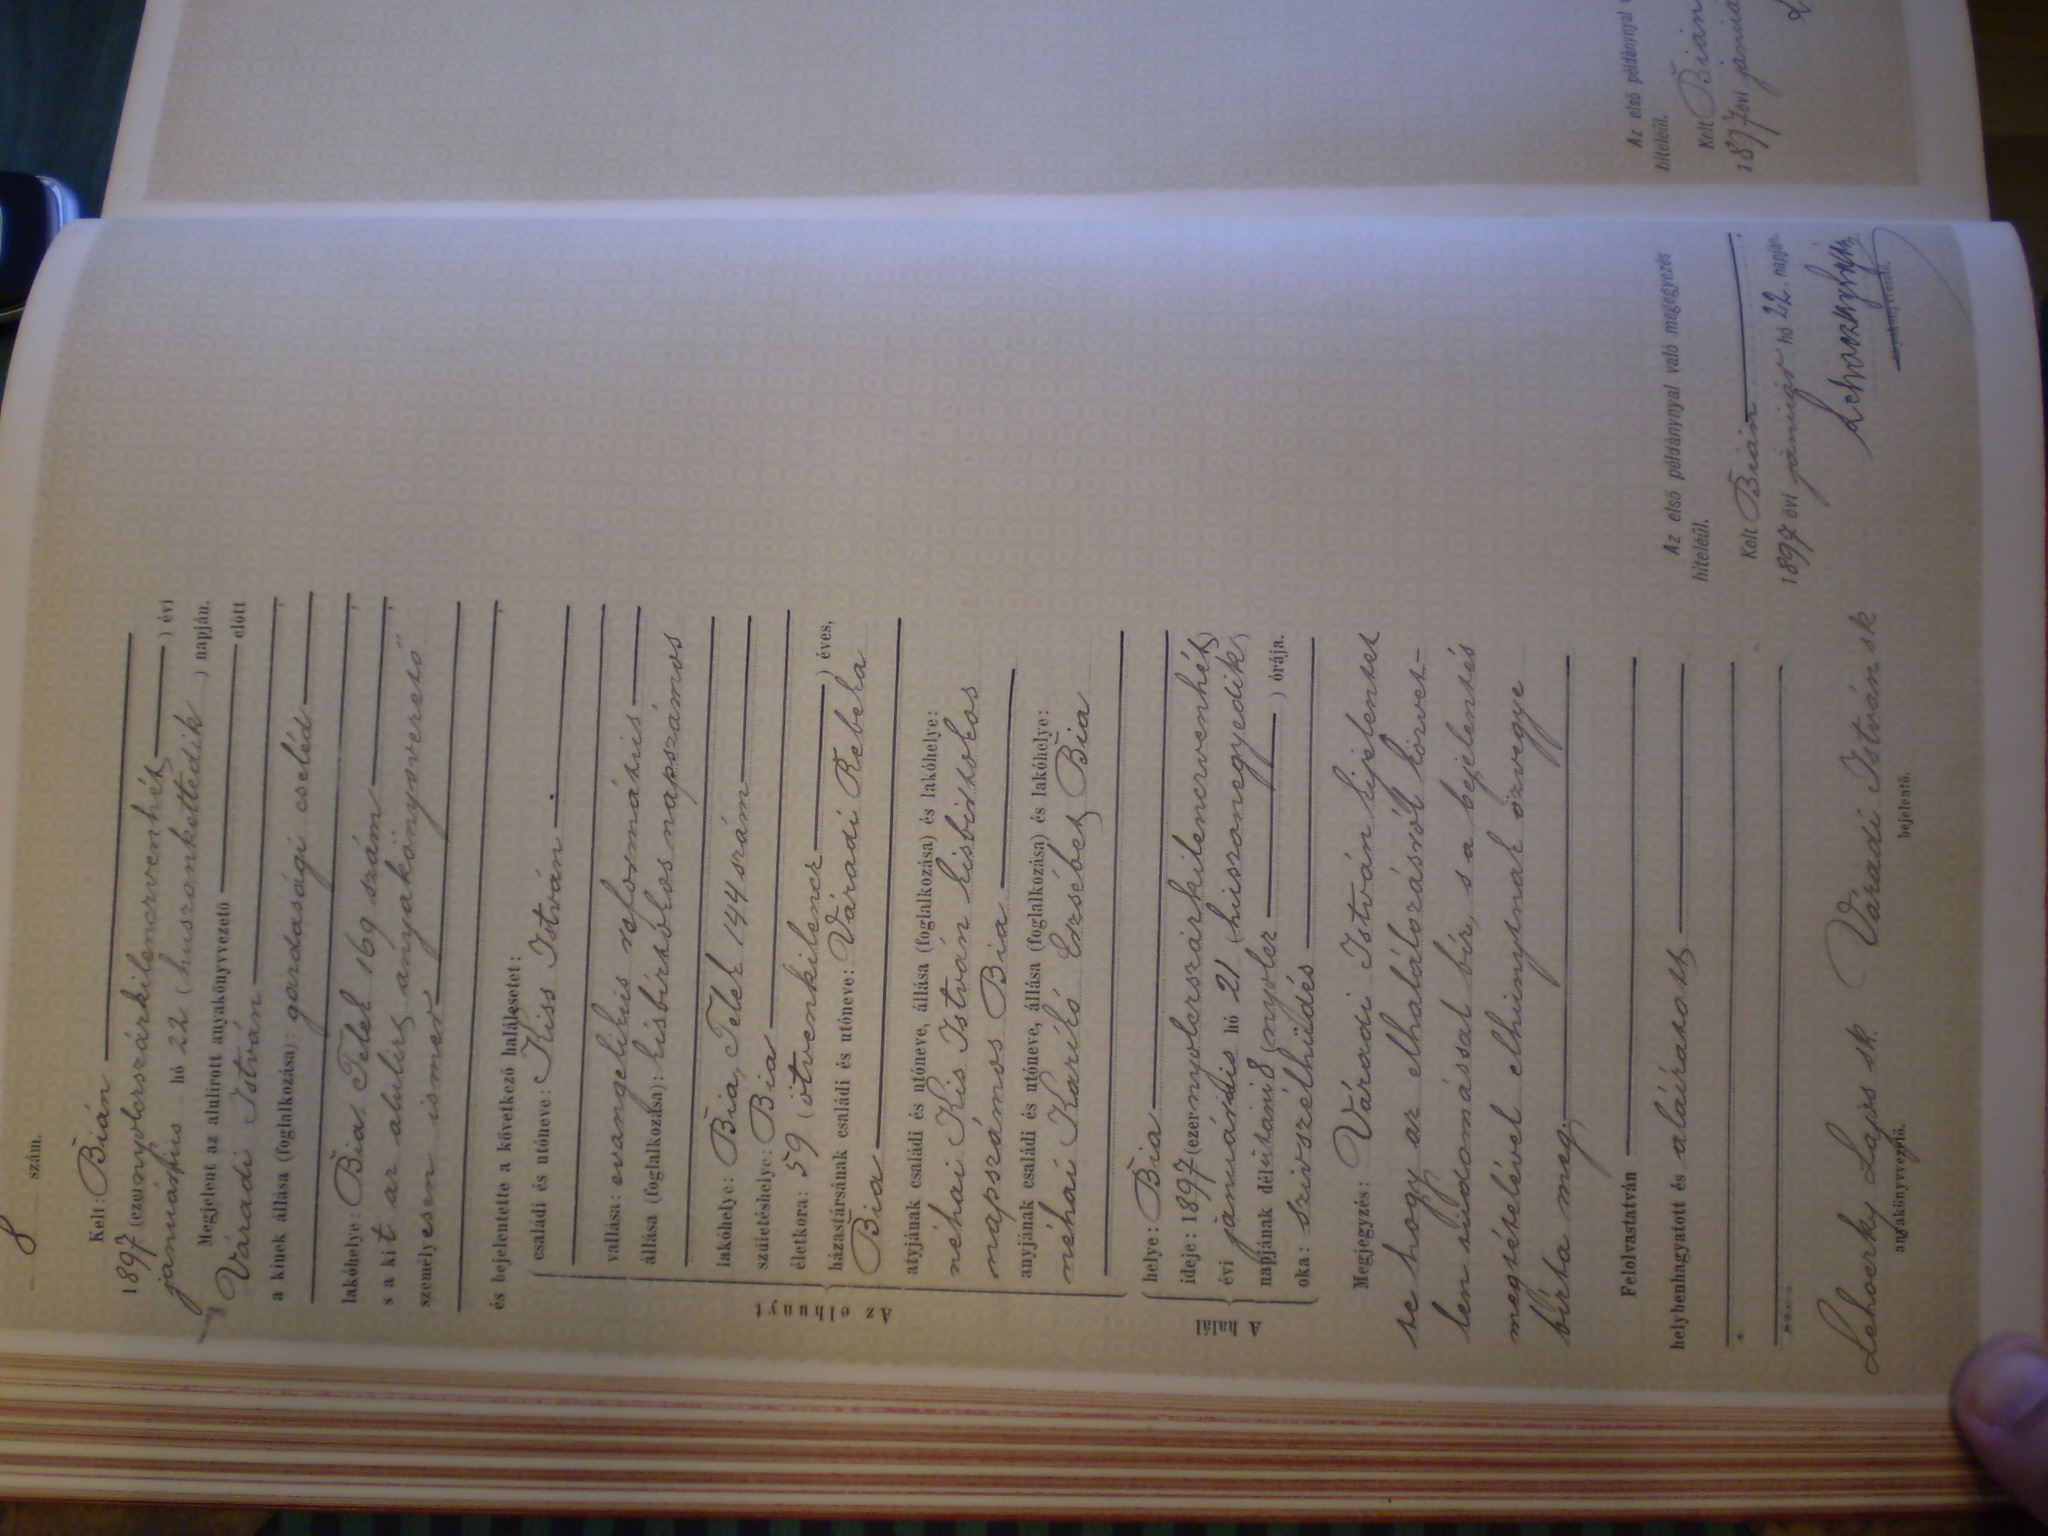 8 szám.
Kelt: Bián
1897 (ezernyolcszázkilencvenhét) évi
január hó 22 (huszonkettedik) napján.
Megjelent az alulirott anyakönyvvezető előtt
Váradi István
a kinek állása (foglalkozása): gazdasági cseléd
lakóhelye: Bia, Telek 169 szám
s a kit az alulirt anyakönyvvezető
személyesen ismer
és bejelentette a következő halálesetet:
Az elhunyt
családi és utóneve: Kiss István
vallása: evangelikus református
állása (foglalkozása): kisbirtokos napszámos
lakóhelye: Bia, Telek 144 szám
születéshelye: Bia
életkora: 59 (ötvenkilenc) éves,
házastársának családi és utóneve: Váradi Rebeka
Bia
atyjának családi és utóneve, állása (foglalkozása) és lakóhelye:
néhai Kis István kisbirtokos
napszámos Bia
anyjának családi és utóneve, állása (foglalkozása) és lakóhelye:
néhai Karikó Erzsébet Bia
A halál
helye: Bia
ideje: 1897 (ezernyolcszázkilencvenhét)
évi január hó 21 (huszonegyedik)
napjának délutáni 8 (nyolc) órája.
oka: szivszélhüdés
Megjegyzés: Váradi István kijelentet
te hogy az elhalálozásról közvet-
len tudomással bír, s a bejelentés
megtételével elhunytnak özvegye
bízta meg.
Felolvastatván
helybenhagyatott és aláíratott
Lehoczky Lajos sk. Váradi István sk
anyakönyvvezető. bejelentő.
Az első példánynyal való megegyezés
hiteléül.
Kelt Bián
1897 évi január hó 22. napján.
Lehoczky Lajos
anyakönyvvezető.
Az első példánynyal
hiteléül.
Kelt Bián
1897 évi